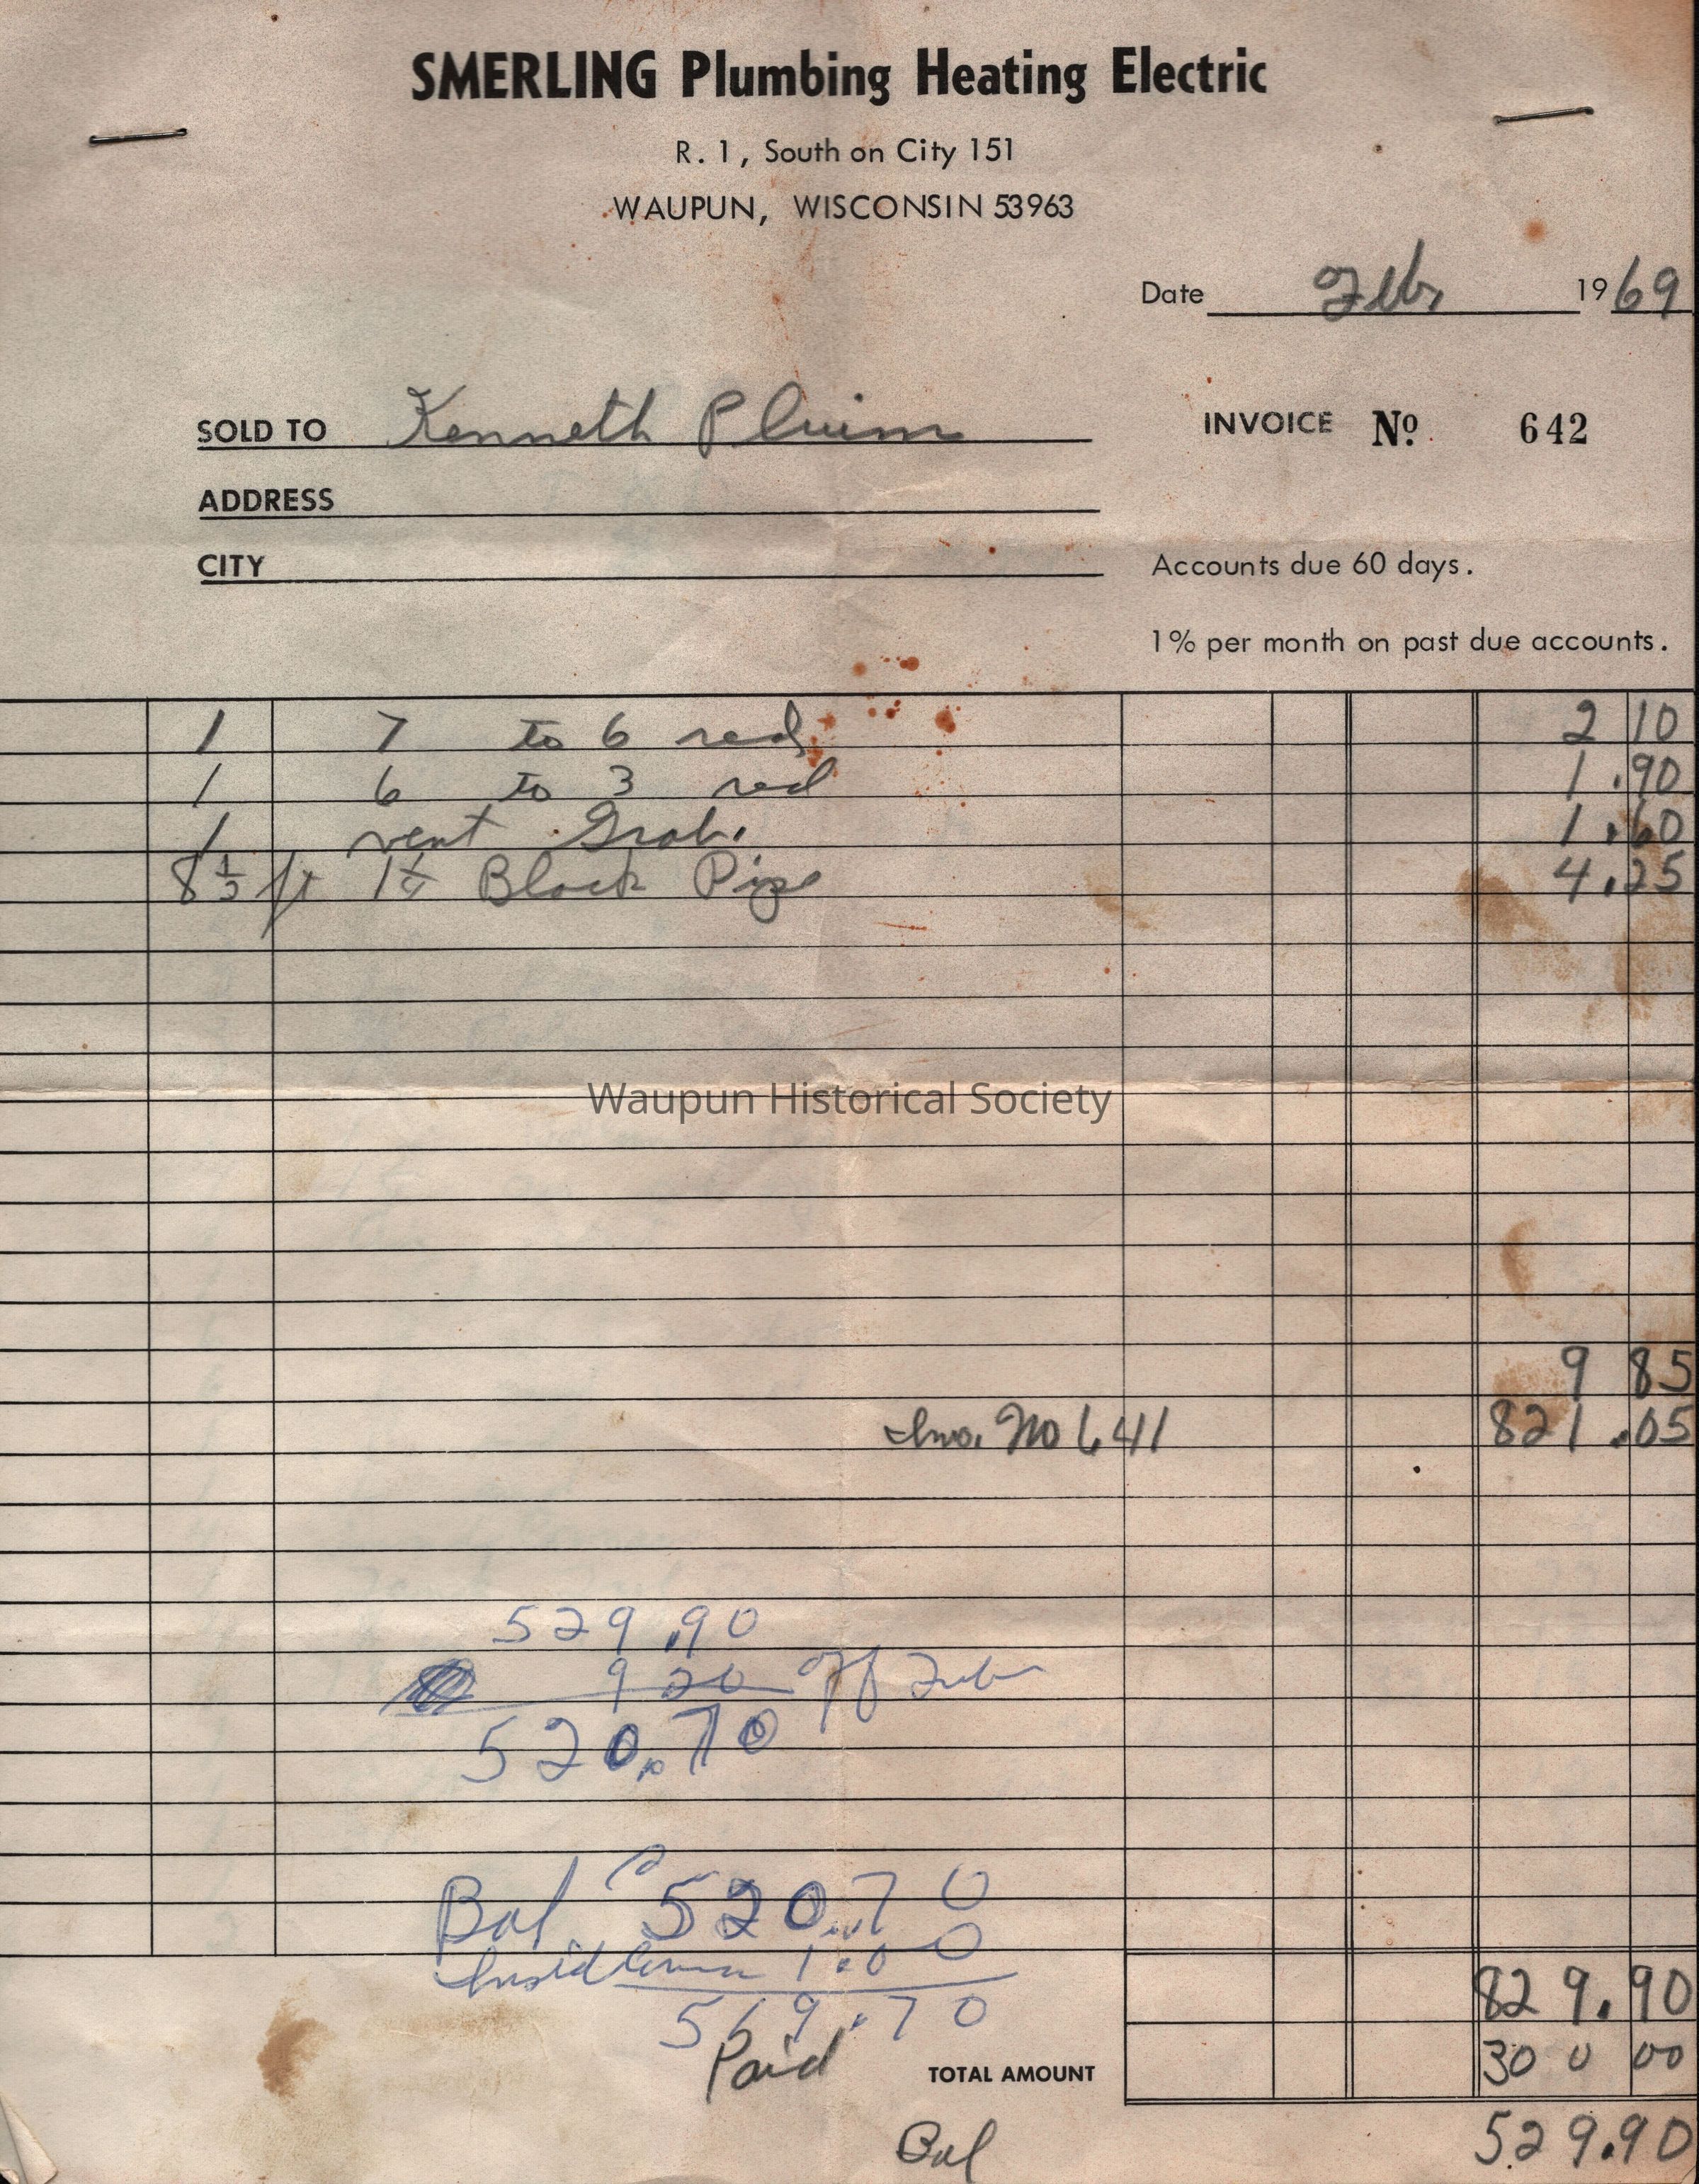 SMERLING Plumbing Heating Electric
R. 1, South on City 151
WAUPUN, WISCONSIN 53963
Date Feb, 1969
SOLD TO Kenneth Pluim
INVOICE No. 642
ADDRESS
CITY
Accounts due 60 days.
1% per month on past due accounts.
1 7 to 6 red, 2 10
1 6 to 3 red 1.90
1 vent Grab. 1.60
8 1/2 ft 1 1/4 Black Pipe 4.25
Waupun Historical Society
9 85
Inv. No 641 821.05
529.90
9 20 off Tub
520.70
Bal 520.70
1.00
519.70
829.90
Paid
TOTAL AMOUNT 300 00
Bal 529.90